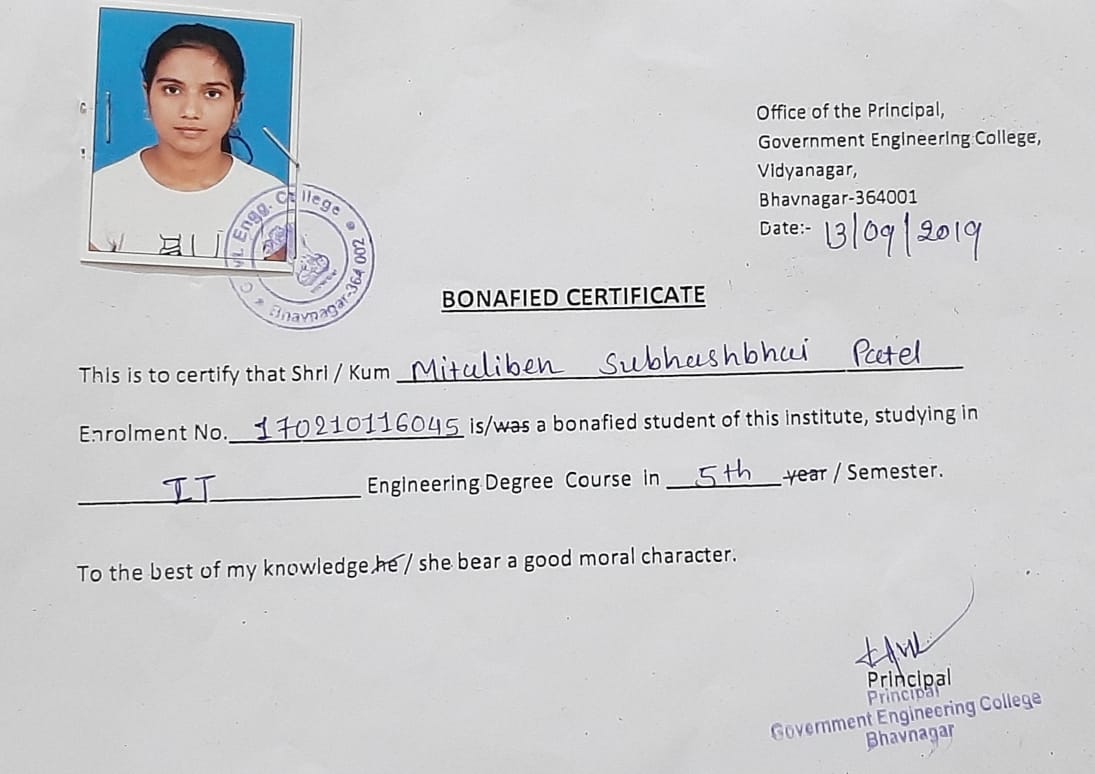 Office of the Principal,
Government Engineering College,
Vidyanagar,
Bhavnagar-364001
Date:- 13/09/2019
Engg. College
Bhavnagar-364 002
BONAFIED CERTIFICATE
This is to certify that Shri / Kum Mitaliben Subhashbhai Patel
Enrolment No. 170210116045 is/was a bonafied student of this institute, studying in
IT Engineering Degree Course in 5th year / Semester.
To the best of my knowledge he / she bear a good moral character.
Principal
Principal
Government Engineering College
Bhavnagar